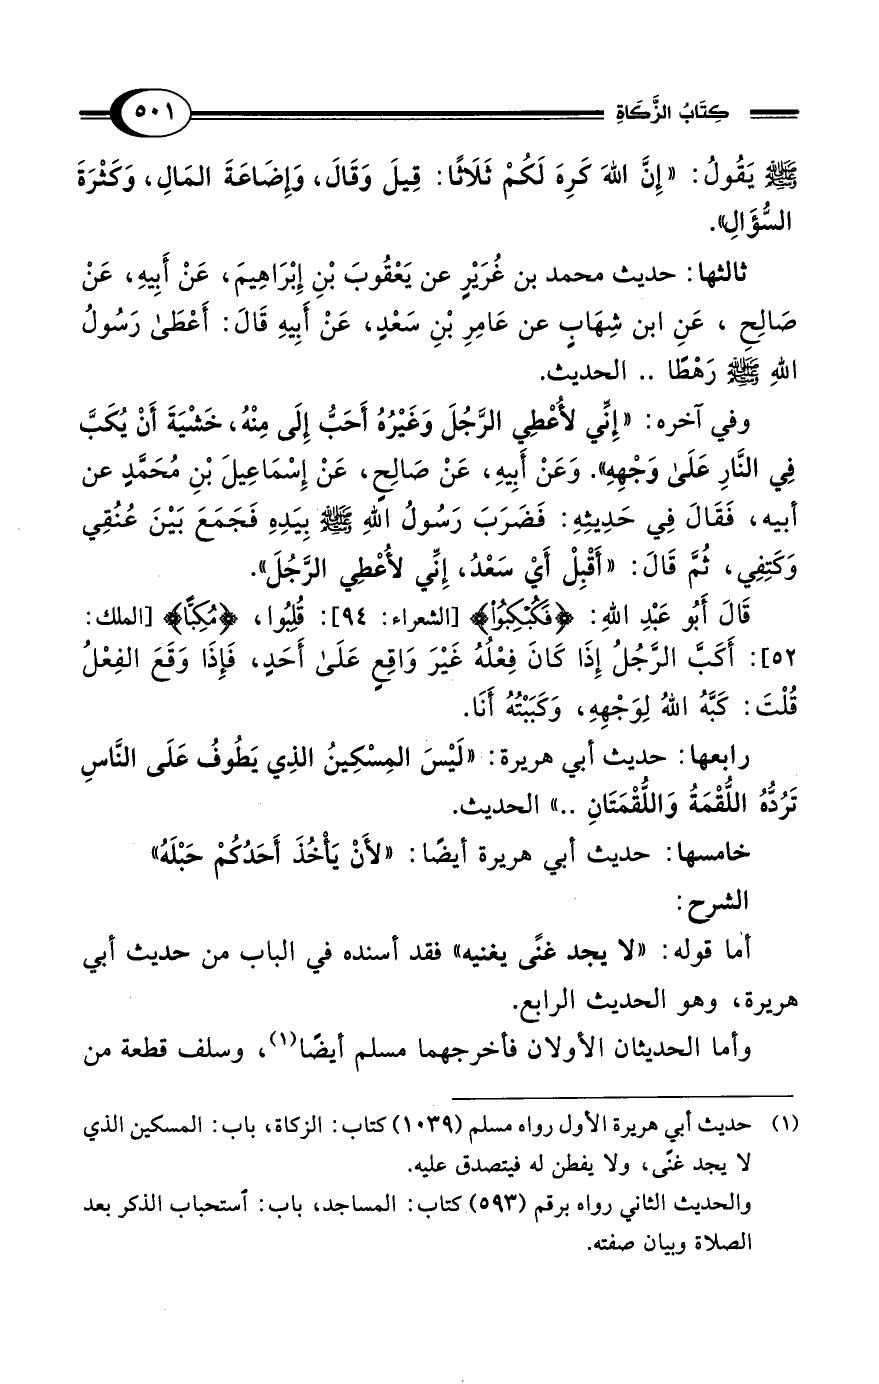 كِتَابُ الزَّكَاةِ ٥٠١
ﷺ يَقُولُ: «إِنَّ اللهَ كَرِهَ لَكُمْ ثَلَاثًا: قِيلَ وَقَالَ، وَإِضَاعَةَ المَالِ، وَكَثْرَةَ
السُّؤَالِ».
ثالثها: حديث محمد بن غُرَيْرٍ عن يَعْقُوبَ بْنِ إِبْرَاهِيمَ، عَنْ أَبِيهِ، عَنْ
صَالِحٍ ، عَنِ ابن شِهَابٍ عن عَامِرِ بْنِ سَعْدٍ، عَنْ أَبِيهِ قَالَ: أَعْطَىٰ رَسُولُ
اللهِ ﷺ رَهْطًا .. الحديث.
وفي آخره: «إِنِّي لأُعْطِي الرَّجُلَ وَغَيْرُهُ أَحَبُّ إِلَى مِنْهُ، خَشْيَةَ أَنْ يُكَبَّ
فِي النَّارِ عَلَىٰ وَجْهِهِ». وَعَنْ أَبِيهِ، عَنْ صَالِحٍ، عَنْ إِسْمَاعِيلَ بْنِ مُحَمَّدٍ عن
أبيه، فَقَالَ فِي حَدِيثِهِ: فَضَرَبَ رَسُولُ اللهِ ﷺ بِيَدِهِ فَجَمَعَ بَيْنَ عُنُقِي
وَكَتِفِي، ثُمَّ قَالَ: «أَقْبِلْ أَيْ سَعْدُ، إِنِّي لأُعْطِي الرَّجُلَ».
قَالَ أَبُو عَبْدِ اللهِ: ﴿فَكُبْكِبُوا﴾ [الشعراء: ٩٤]: قُلِبُوا، ﴿مُكِبًّا﴾ [الملك:
٥٢]: أَكَبَّ الرَّجُلُ إِذَا كَانَ فِعْلُهُ غَيْرَ وَاقِعٍ عَلَىٰ أَحَدٍ، فَإِذَا وَقَعَ الفِعْلُ
قُلْتَ: كَبَّهُ اللهُ لِوَجْهِهِ، وَكَبَبْتُهُ أَنَا.
رابعها: حديث أبي هريرة: «لَيْسَ المِسْكِينُ الذِي يَطُوفُ عَلَى النَّاسِ
تَرُدُّهُ اللُّقْمَةُ وَاللُّقْمَتَانِ ..» الحديث.
خامسها: حديث أبي هريرة أيضًا: «لأَنْ يَأْخُذَ أَحَدُكُمْ حَبْلَهُ»
الشرح:
أما قوله: «لا يجد غنًى يغنيه» فقد أسنده في الباب من حديث أبي
هريرة، وهو الحديث الرابع.
وأما الحديثان الأولان فأخرجهما مسلم أيضًا(١)، وسلف قطعة من
(١) حديث أبي هريرة الأول رواه مسلم (١٠٣٩) كتاب: الزكاة، باب: المسكين الذي
لا يجد غنًى، ولا يفطن له فيتصدق عليه.
والحديث الثاني رواه برقم (٥٩٣) كتاب: المساجد، باب: ٱستحباب الذكر بعد
الصلاة وبيان صفته.